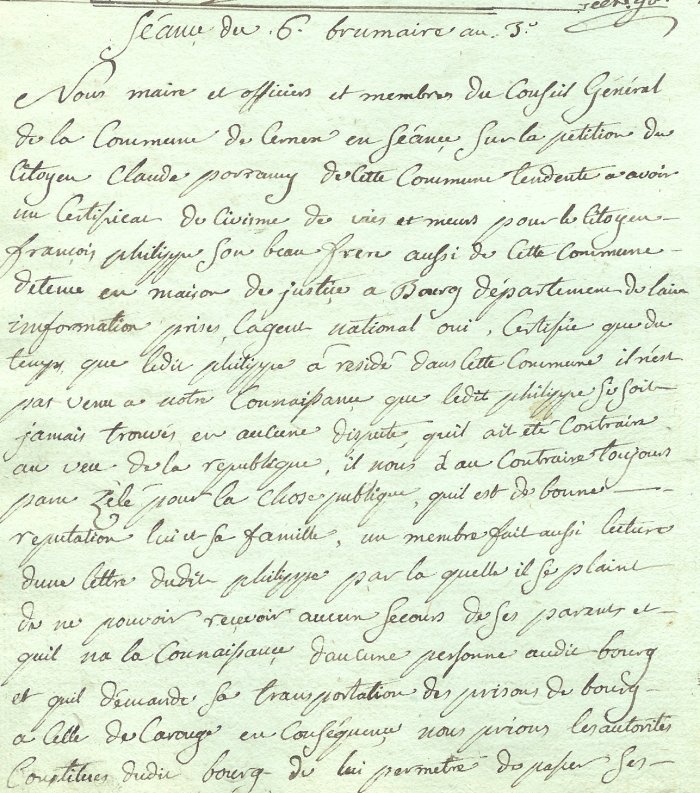 Séance du 6. brumaire an 3.e
Nous maire et officiers et membres du Conseil Général
de la Commune de Cernex en Séance sur la petition du
Citoyen Claude porramy de Cette Commune tendente a avoir
un Certificat de Civisme de vies et meurs pour le Citoyen
françois philippe Son beau frere aussi de Cette Commune
detenue en maison de justice a Bourg département de lain
information prises lagent national oui, Certifie que du
temps que ledit philippe á residé dans Cette Commune il nest
pas venu a notre Connaissance que ledit philippe se soit
jamais trouvés en aucune dispute, quil ait été Contraire
au veu de la republique, il nous á au Contraire toujours
paru Zèlé pour la Chose publique, quil est de bonne
reputation lui et sa famille, un membre fait aussi lecture
dune lettre dudit philippe par la quelle il se plaint
de ne pouvoir reçevoir aucun Secours de Ses parants et
quil na la Connaissance daucune personne audit bourg
et quil demande sa transportation des prisons de bourg
a Celle de Carouge en Conséquence nous prions les autorités
Constitues dudit bourg de lui permetre de passer Ses